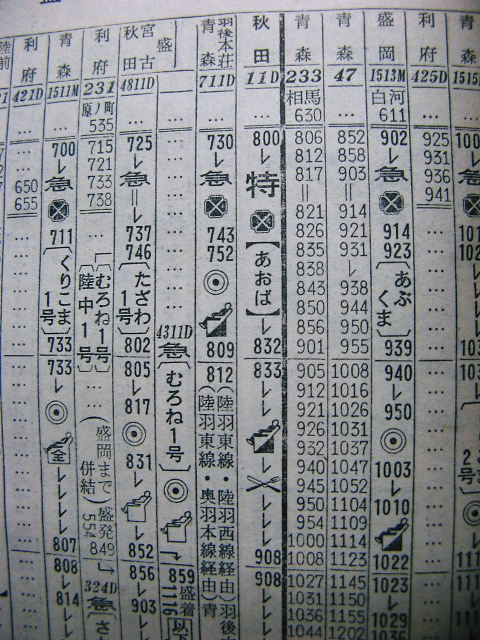 陸前
利府
青森
利府
秋田
宮古
盛
青森
羽後本荘
秋田
青森
青森
盛岡
利府
青森
421D 1511M 231 4811D 711D 11D 233 47 1513M 425D 1515
原ノ町
535
相馬
630
白河
611
700
急
711
〔くりこま1号〕
733
733
全
807
808
814
650
655
715
721
733
738
〔むろね1号
陸中1号〕
(盛岡まで併結)
盛発
554
849
324D
急
725
急
737
746
〔たざわ1号〕
802
805
817
831
852
856
903
4311D
急
〔むろね1号〕
859
盛着
1116
730
急
743
752
809
812
(陸羽東線・陸羽西線
・奥羽本線経由)
800
特
【あおば】
832
833
908
908
806
812
817
821
826
835
838
843
850
856
901
905
912
921
926
932
940
945
950
954
1000
1008
1027
1031
1036
1044
852
858
903
914
921
931
938
944
950
955
1008
1016
1026
1031
1037
1047
1052
1104
1109
1114
1123
1145
1150
1155
1202
902
急
914
923
〔あぶくま〕
939
940
950
1003
1010
1022
1023
1029
925
931
936
941
急